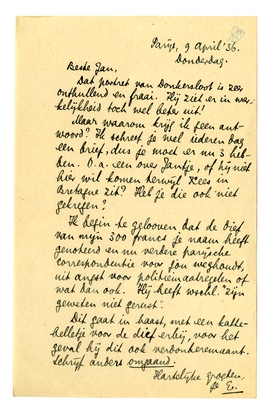 Parijs, 9 April '36.
Donderdag.
Beste Jan,
Dat portret van Donkersloot is zeer
onthullend en fraai. Hij ziet er in wer-
kelijkheid toch wel beter uit!
Maar waarom krijg ik geen ant-
woord? Ik schreef je wel iederen dag
een brief, dus je moet er nu 3 heb-
ben. O.a. een over Jantje, of hij niet
hier wil komen terwijl Kees in
Bretagne zit? Heb je die ook niet
gekregen?
Ik begin te gelooven dat de dief
van mijn 300 francs je naam heeft
genoteerd en nu verdere parijsche
correspondentie voor jou weghoudt,
uit angst voor politiemaatregelen of
wat dan ook. Hij heeft wschl. "zijn
geweten niet gerust".
Dit gaat in haast, met een katte-
belletje voor de dief erbij, voor het
geval hij dit ook verdonkeremaant.
Schrijf anders omgaand.
Hartelijke groeten,
E.